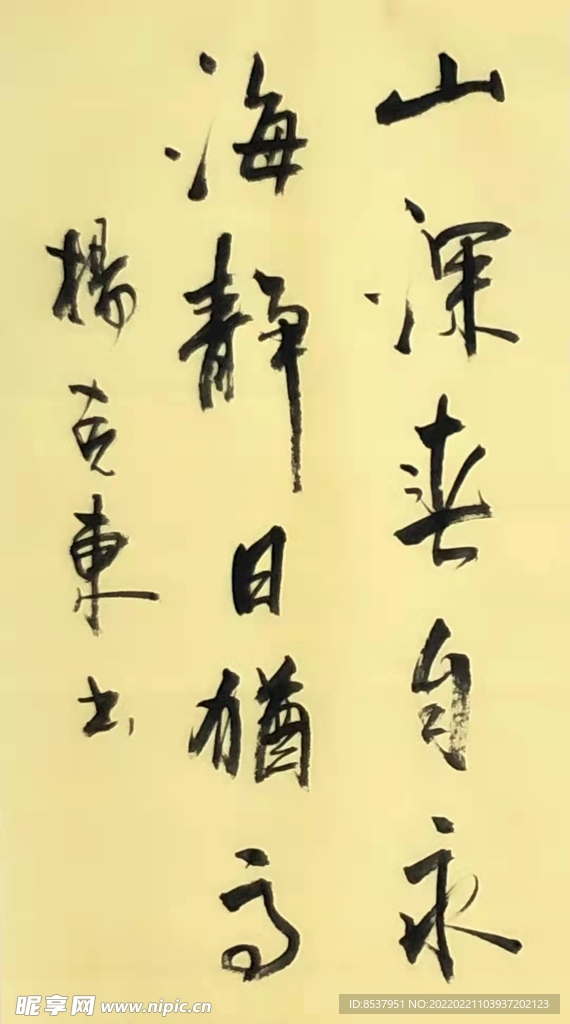 山深春自永
海静日猶高
楊克東书
昵享网 www.nipic.cn
ID:8537951 NO:20220221103937202123